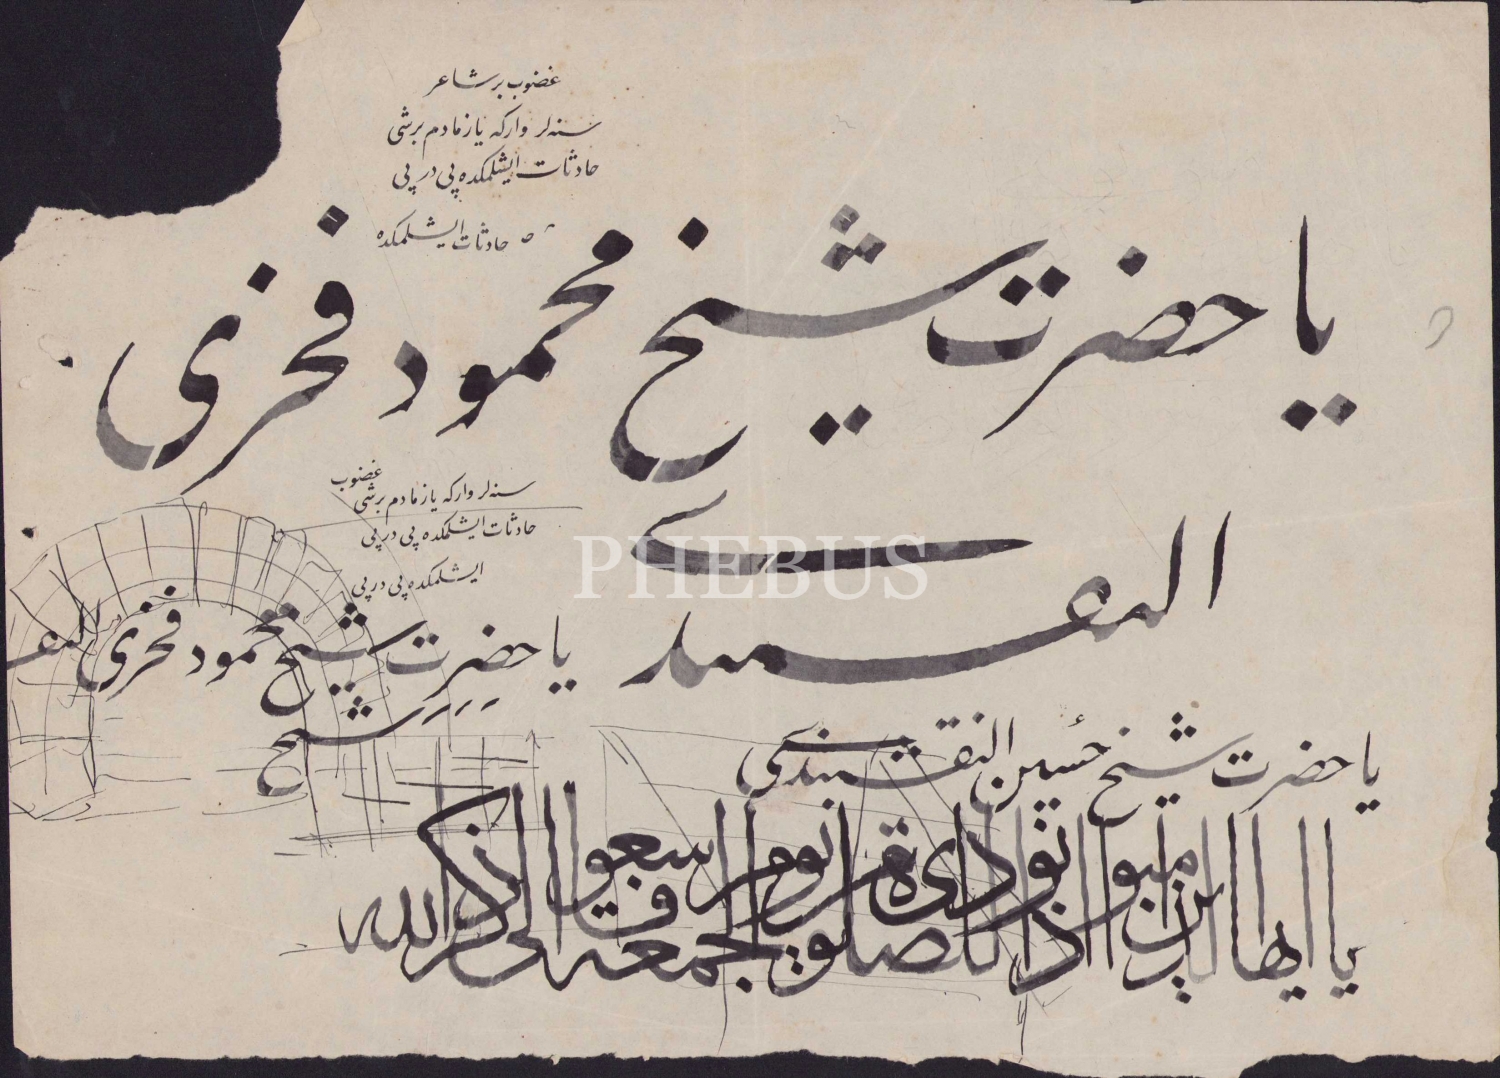 غضوب بر شاعر
سنه لر واركه يازمادم بر شی
حادثات ايشلمكده پی در پی
حادثات ايشلمكده
يا حضرت شيخ محمود فخری
سنه لر واركه يازمادم بر شی غضوب
حادثات ايشلمكده پی در پی
ايشلمكده پی در پی
PHEBUS
النقشبندی
يا حضرت شيخ محمود فخری
شيخ
يا حضرت شيخ حسين النقشبندی
يا ايها الذين امنوا اذا نودی للصلوة من يوم الجمعة فاسعوا الی ذكر الله